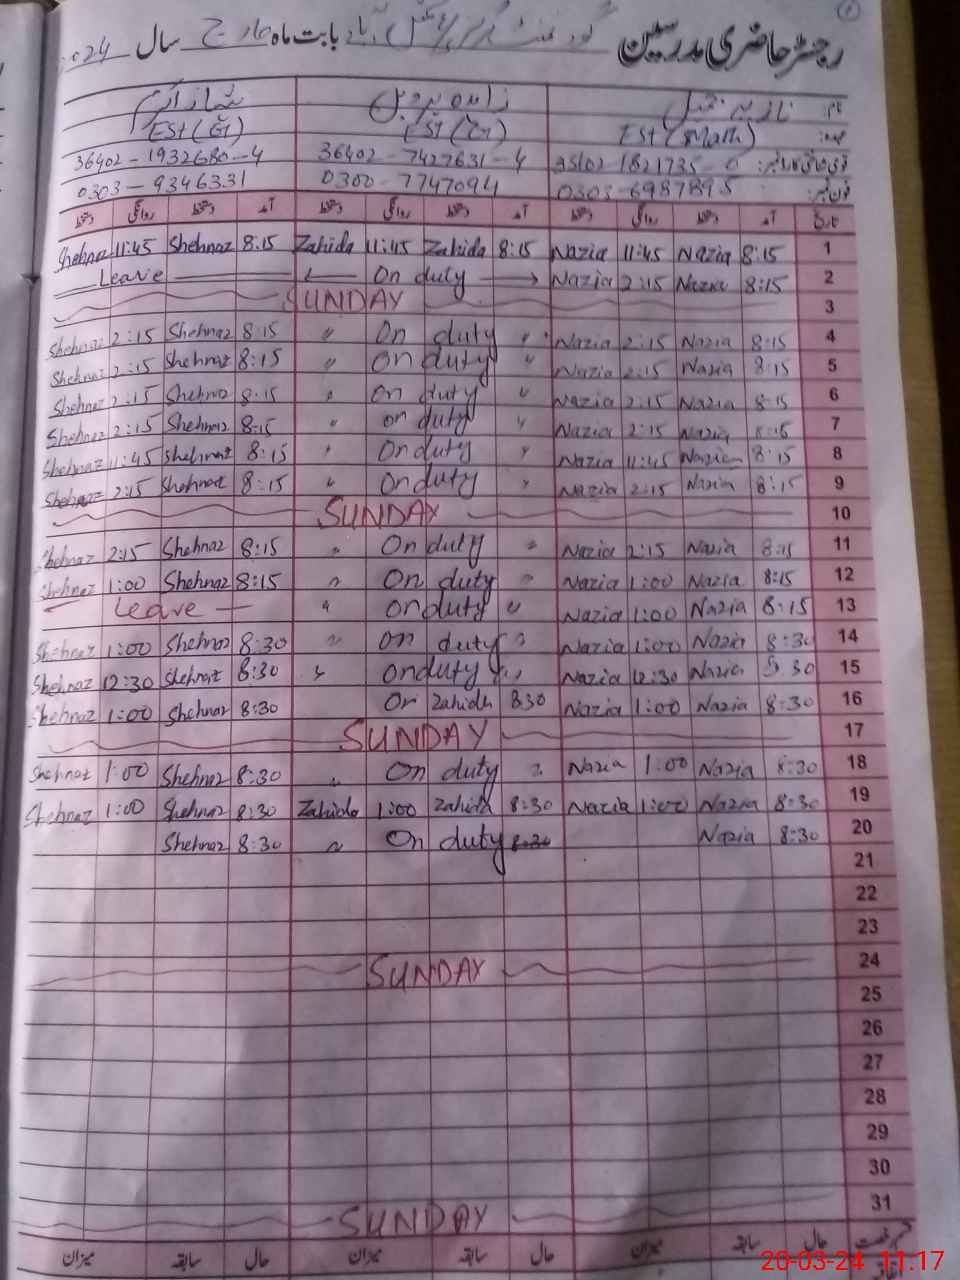 رجسٹر حاضری مدرسین گورنمنٹ گرلز بابت ماہ مارچ سال 2024
نام نازیہ زاہدہ پروین شہناز اختر
عہدہ Est (Math) EST EST
قومی شناختی کارڈ نمبر 36402-7427631-4 36402-1932680-4
فون نمبر 0303-6987895 0300-7747094 0303-9346331
تاریخ آمد دستخط روانگی دستخط آمد دستخط روانگی دستخط آمد دستخط روانگی دستخط
Shehnaz 11:45 Shehnaz 8:15 Zahida 11:45 Zahida 8:15 Nazia 11:45 Nazia 8:15 1
Leave On duty Nazia 2:15 Nazia 8:15 2
SUNDAY 3
Shehnaz 2:15 Shehnaz 8:15 〃 On duty 〃 Nazia 2:15 Nazia 8:15 4
Shehnaz 2:15 Shehnaz 8:15 〃 On duty 〃 Nazia 2:15 Nazia 8:15 5
Shehnaz 2:15 Shehnaz 8:15 〃 On duty 〃 Nazia 2:15 Nazia 8:15 6
Shehnaz 2:15 Shehnaz 8:15 〃 on duty 〃 Nazia 2:15 Nazia 8:15 7
Shehnaz 11:45 Shehnaz 8:15 〃 On duty 〃 Nazia 11:45 Nazia 8:15 8
Shehnaz 2:15 Shehnaz 8:15 〃 On duty 〃 Nazia 2:15 Nazia 8:15 9
SUNDAY 10
Shehnaz 2:15 Shehnaz 8:15 〃 On duty 〃 Nazia 2:15 Nazia 8:15 11
Shehnaz 1:00 Shehnaz 8:15 〃 On duty 〃 Nazia 1:00 Nazia 8:15 12
Leave 〃 on duty 〃 Nazia 1:00 Nazia 8:15 13
Shehnaz 1:00 Shehnaz 8:30 〃 on duty 〃 Nazia 1:00 Nazia 8:30 14
Shehnaz 12:30 Shehnaz 8:30 〃 on duty 〃 Nazia 12:30 Nazia 8:30 15
Shehnaz 1:00 Shehnaz 8:30 On Zahida 8:30 Nazia 1:00 Nazia 8:30 16
SUNDAY 17
Shehnaz 1:00 Shehnaz 8:30 〃 On duty 〃 Nazia 1:00 Nazia 8:30 18
Shehnaz 1:00 Shehnaz 8:30 Zahida 1:00 Zahida 8:30 Nazia 1:00 Nazia 8:30 19
Shehnaz 8:30 〃 On duty 8:30 Nazia 8:30 20
21
22
23
SUNDAY 24
25
26
27
28
29
30
31
SUNDAY
قسم رخصت حال سابقہ میزان حال سابقہ میزان حال سابقہ میزان
20-03-24 11:17